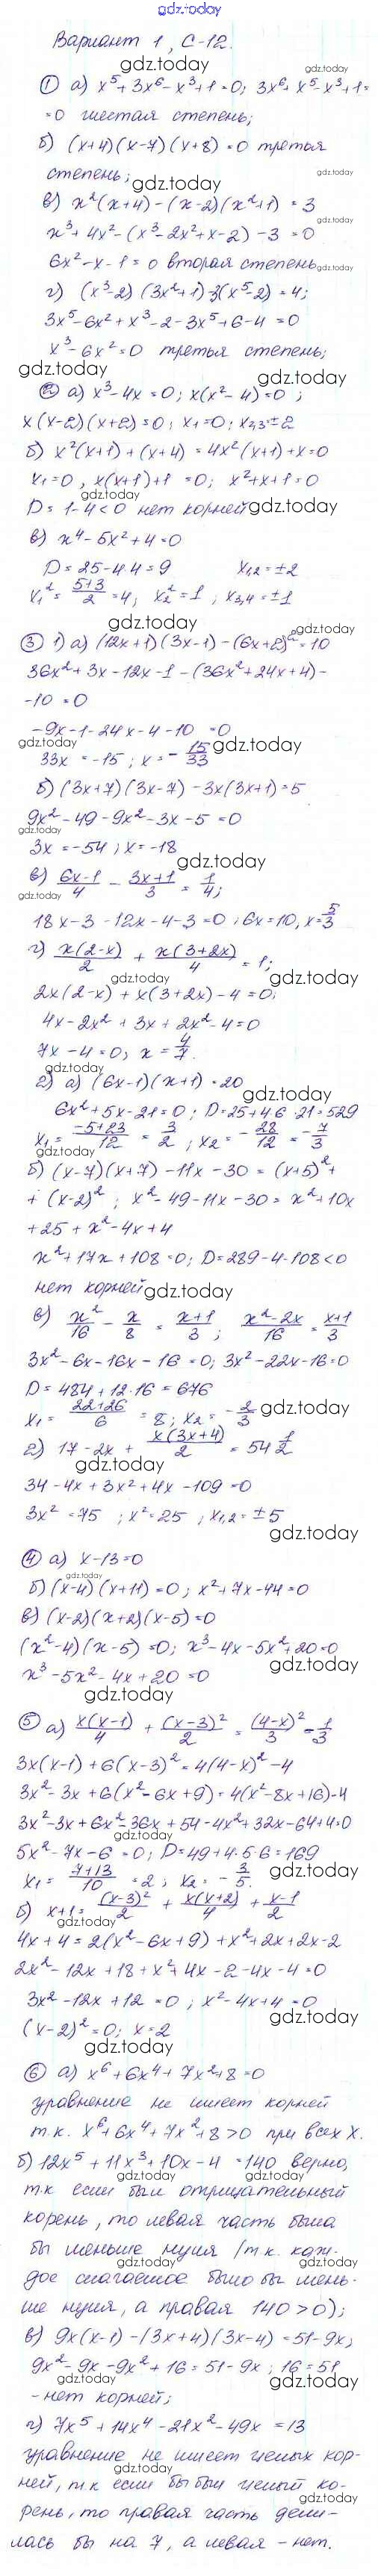 gdz.today
Вариант 1, С-12.
gdz.today
① а) x⁵ + 3x⁶ - x³ + 1 = 0; 3x⁶ + x⁵ - x³ + 1 =
= 0 шестая степень;
gdz.today
б) (x+4)(x-7)(x+8) = 0 третья
степень;
gdz.today
в) x²(x+4) - (x-2)(x²+1) = 3
x³ + 4x² - (x³ - 2x² + x - 2) - 3 = 0
6x² - x - 1 = 0 вторая степень
gdz.today
г) (x³-2)(3x²+1) - 3(x⁵-2) = 4;
3x⁵ - 6x² + x³ - 2 - 3x⁵ + 6 - 4 = 0
x³ - 6x² = 0 третья степень;
gdz.today
② а) x³ - 4x = 0; x(x² - 4) = 0;
x(x-2)(x+2) = 0; x₁ = 0; x₂,₃ = ±2
б) x²(x+1) + (x+4) = 4x²(x+1) + x = 0
x₁ = 0, x(x+1) + 1 = 0; x² + x + 1 = 0
gdz.today
D = 1 - 4 < 0 нет корней
gdz.today
в) x⁴ - 5x² + 4 = 0
D = 25 - 4·4 = 9 x₁,₂ = ±2
x₁² = (5+3)/2 = 4; x₂² = 1; x₃,₄ = ±1
gdz.today
③ 1) а) (12x+1)(3x-1) - (6x+2)² = 10
36x² + 3x - 12x - 1 - (36x² + 24x + 4) -
- 10 = 0
-9x - 1 - 24x - 4 - 10 = 0
gdz.today
33x = -15; x = -15/33
gdz.today
б) (3x+7)(3x-7) - 3x(3x+1) = 5
9x² - 49 - 9x² - 3x - 5 = 0
gdz.today
3x = -54; x = -18
gdz.today
в) (6x-1)/4 - (3x+1)/3 = 1/4;
gdz.today
18x - 3 - 12x - 4 - 3 = 0; 6x = 10, x = 5/3
г) x(2-x)/2 + x(3+2x)/4 = 1;
gdz.today
2x(2-x) + x(3+2x) - 4 = 0;
4x - 2x² + 3x + 2x² - 4 = 0
7x - 4 = 0; x = 4/7.
gdz.today
2) а) (6x-1)(x+1) = 20
gdz.today
6x² + 5x - 21 = 0; D = 25 + 4·6·21 = 529
x₁ = (-5+23)/12 = 3/2; x₂ = -28/12 = -7/3
gdz.today
б) (x-7)(x+7) - 11x - 30 = (x+5)² +
+ (x-2)²; x² - 49 - 11x - 30 = x² + 10x
+ 25 + x² - 4x + 4
x² + 17x + 108 = 0; D = 289 - 4·108 < 0
нет корней
gdz.today
в) x²/16 - x/8 = (x+1)/3; (x²-2x)/16 = (x+1)/3
3x² - 6x - 16x - 16 = 0; 3x² - 22x - 16 = 0
D = 484 + 12·16 = 676
x₁ = (22+26)/6 = 8; x₂ = -2/3
gdz.today
г) 17 - 2x + x(3x+4)/2 = 54 1/2
gdz.today
34 - 4x + 3x² + 4x - 109 = 0
3x² = 75; x² = 25; x₁,₂ = ±5
gdz.today
④ а) x - 13 = 0
gdz.today
б) (x-4)(x+11) = 0; x² + 7x - 44 = 0
в) (x-2)(x+2)(x-5) = 0
(x²-4)(x-5) = 0; x³ - 4x - 5x² + 20 = 0
gdz.today
x³ - 5x² - 4x + 20 = 0
gdz.today
⑤ а) x(x-1)/4 + (x-3)²/2 = (4-x)²/3 - 1/3
3x(x-1) + 6(x-3)² = 4(4-x)² - 4
3x² - 3x + 6(x² - 6x + 9) = 4(x² - 8x + 16) - 4
3x² - 3x + 6x² - 36x + 54 - 4x² + 32x - 64 + 4 = 0
gdz.today
5x² - 7x - 6 = 0; D = 49 + 4·5·6 = 169
x₁ = (7+13)/10 = 2; x₂ = -3/5.
gdz.today
б) x + 1 = (x-3)²/2 + x(x+2)/4 + (x-1)/2
gdz.today
4x + 4 = 2(x² - 6x + 9) + x² + 2x + 2x - 2
2x² - 12x + 18 + x² + 4x - 2 - 4x - 4 = 0
3x² - 12x + 12 = 0; x² - 4x + 4 = 0
gdz.today
(x-2)² = 0; x = 2
gdz.today
⑥ а) x⁶ + 6x⁴ + 7x² + 8 = 0
уравнение не имеет корней
т.к. x⁶ + 6x⁴ + 7x² + 8 > 0 при всех x.
gdz.today
б) 12x⁵ + 11x³ + 10x - 4 = 140 верно,
gdz.today
т.к если был отрицательный
корень, то левая часть была
бы меньше нуля (т.к. каж-
gdz.today
дое слагаемое было бы мень-
ше нуля, а правая 140 > 0);
gdz.today
в) 9x(x-1) - (3x+4)(3x-4) = 51 - 9x;
9x² - 9x - 9x² + 16 = 51 - 9x; 16 = 51
gdz.today
- нет корней;
г) 7x⁵ + 14x⁴ - 21x² - 49x = 13
уравнение не имеет целых кор-
gdz.today
ней, т.к если бы был целый ко-
gdz.today
рень, то правая часть дели-
лась бы на 7, а левая - нет.